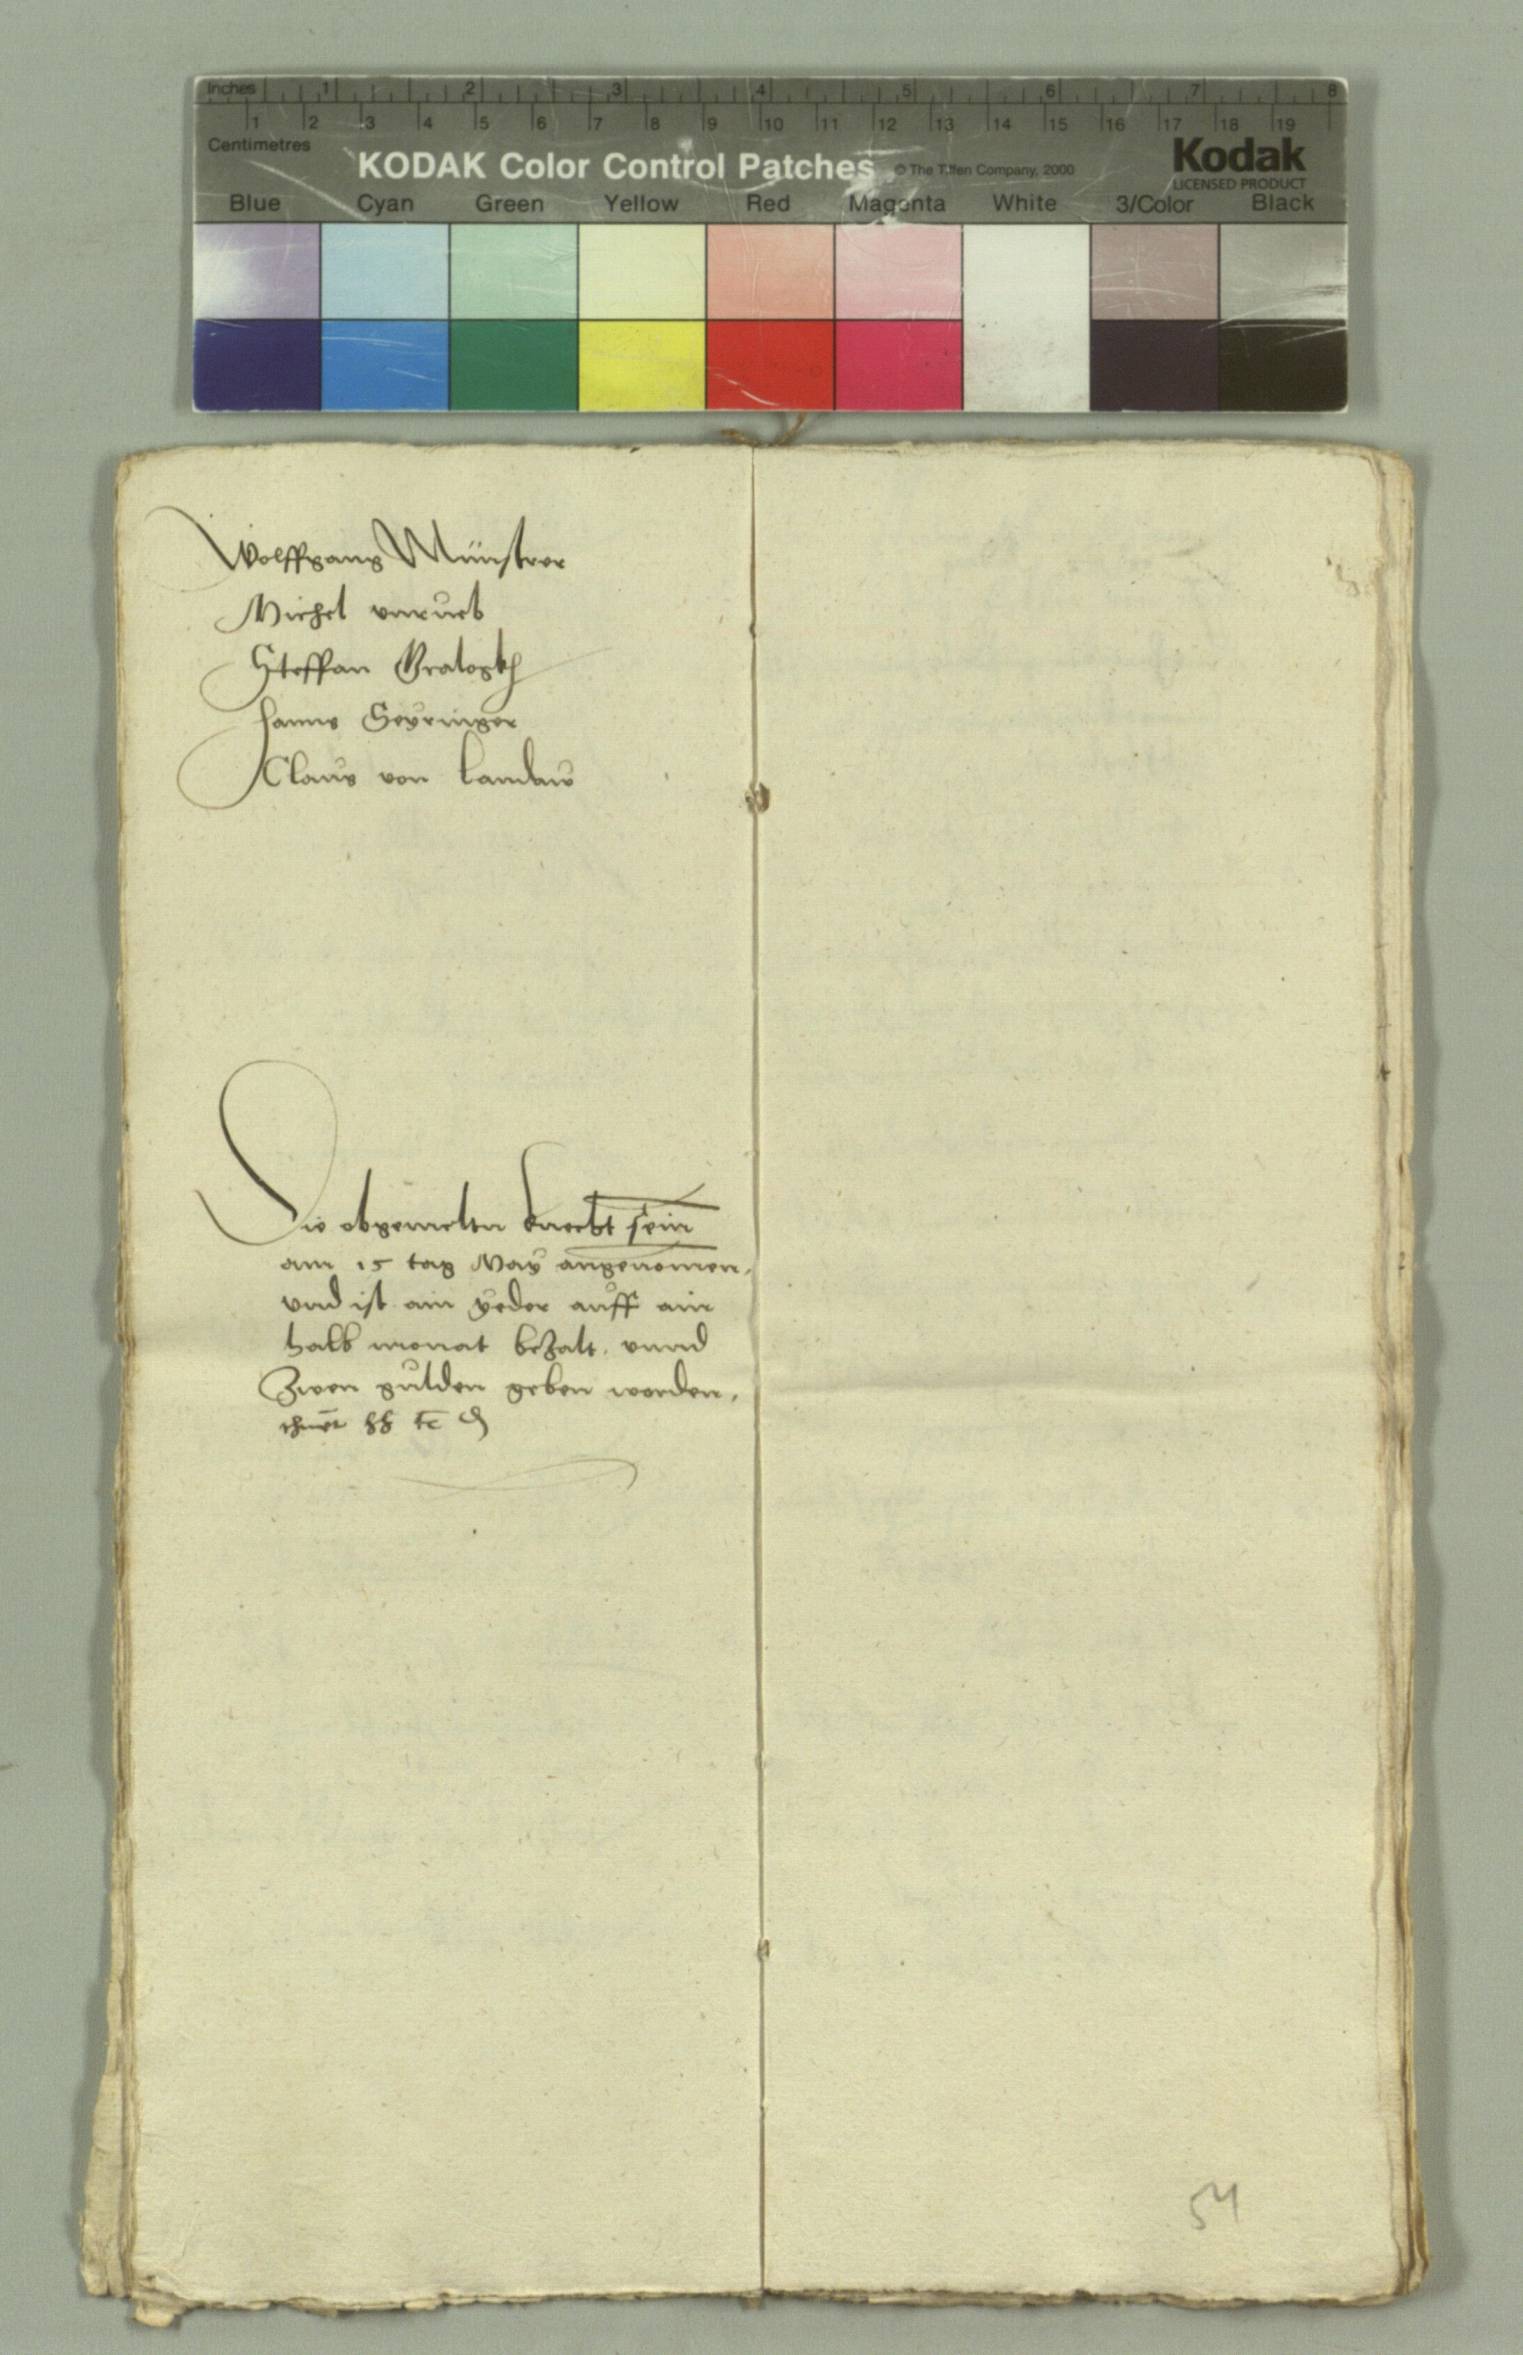 Inches 1 2 3 4 5 6 7 8
1 2 3 4 5 6 7 8 9 10 11 12 13 14 15 16 17 18 19
Centimetres
KODAK Color Control Patches © The Tiffen Company, 2000 Kodak
LICENSED PRODUCT
Blue Cyan Green Yellow Red Magenta White 3/Color Black
Wolffgang Münstrer
Michel
Steffan
Hanns Seyringer
Claus von Landaw
Die obgemeltn knecht sein
am 15 tag May angenomen,
vnd ist ain yeder auff ain
halb monat bezalt. vnnd
Zwen gulden geben worden,
54